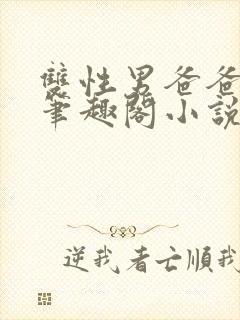 雙性男爸爸
筆趣閣小說
逆我者亡順我